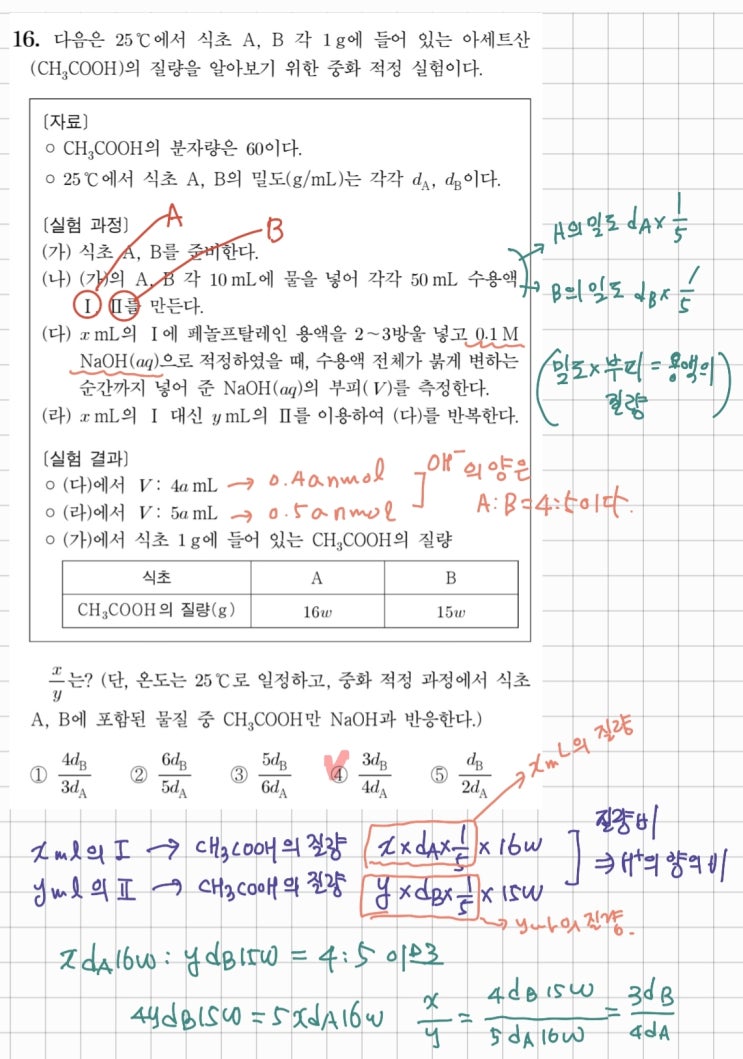 16. 다음은 25℃에서 식초 A, B 각 1g에 들어 있는 아세트산
(CH₃COOH)의 질량을 알아보기 위한 중화 적정 실험이다.
〔자료〕
○ CH₃COOH의 분자량은 60이다.
○ 25℃에서 식초 A, B의 밀도(g/mL)는 각각 d_A, d_B이다.
〔실험 과정〕
A
B
(가) 식초 A, B를 준비한다.
(나) (가)의 A, B 각 10 mL에 물을 넣어 각각 50 mL 수용액
Ⅰ, Ⅱ를 만든다.
A의 밀도 d_A × 1/5
B의 밀도 d_B × 1/5
(밀도×부피 = 용액의
질량)
(다) x mL의 Ⅰ에 페놀프탈레인 용액을 2~3방울 넣고 0.1 M
NaOH(aq)으로 적정하였을 때, 수용액 전체가 붉게 변하는
순간까지 넣어 준 NaOH(aq)의 부피(V)를 측정한다.
(라) x mL의 Ⅰ 대신 y mL의 Ⅱ를 이용하여 (다)를 반복한다.
〔실험 결과〕
○ (다)에서 V: 4a mL → 0.4a nmol
○ (라)에서 V: 5a mL → 0.5a nmol
OH⁻의 양은
A:B=4:5이다.
○ (가)에서 식초 1g에 들어 있는 CH₃COOH의 질량
식초 A B
CH₃COOH의 질량(g) 16w 15w
x/y는? (단, 온도는 25℃로 일정하고, 중화 적정 과정에서 식초
A, B에 포함된 물질 중 CH₃COOH만 NaOH과 반응한다.)
① 4d_B/3d_A ② 6d_B/5d_A ③ 5d_B/6d_A ④ 3d_B/4d_A ⑤ d_B/2d_A
xmL의 질량
xml의 Ⅰ → CH₃COOH의 질량 x×d_A×1/5×16w
yml의 Ⅱ → CH₃COOH의 질량 y×d_B×1/5×15w
질량비
⇒ H⁺의 양의 비
→ ymL의 질량.
x d_A 16w : y d_B 15w = 4:5 이므로
4y d_B 15w = 5x d_A 16w x/y = 4d_B 15w/5d_A 16w = 3d_B/4d_A